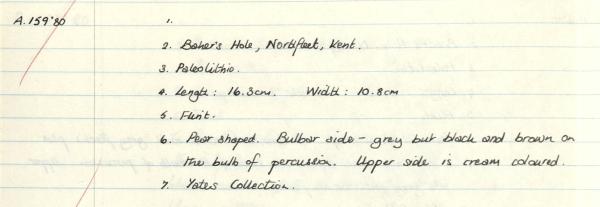 A.159'80 1.
2. Baker's Hole, Northfleet, Kent.
3. Paleolithic.
4. Length: 16.3cm. Width: 10.8cm
5. Flint.
6. Pear shaped. Bulbar side - grey but black and brown on
the bulb of percussion. Upper side is cream coloured.
7. Yates Collection.